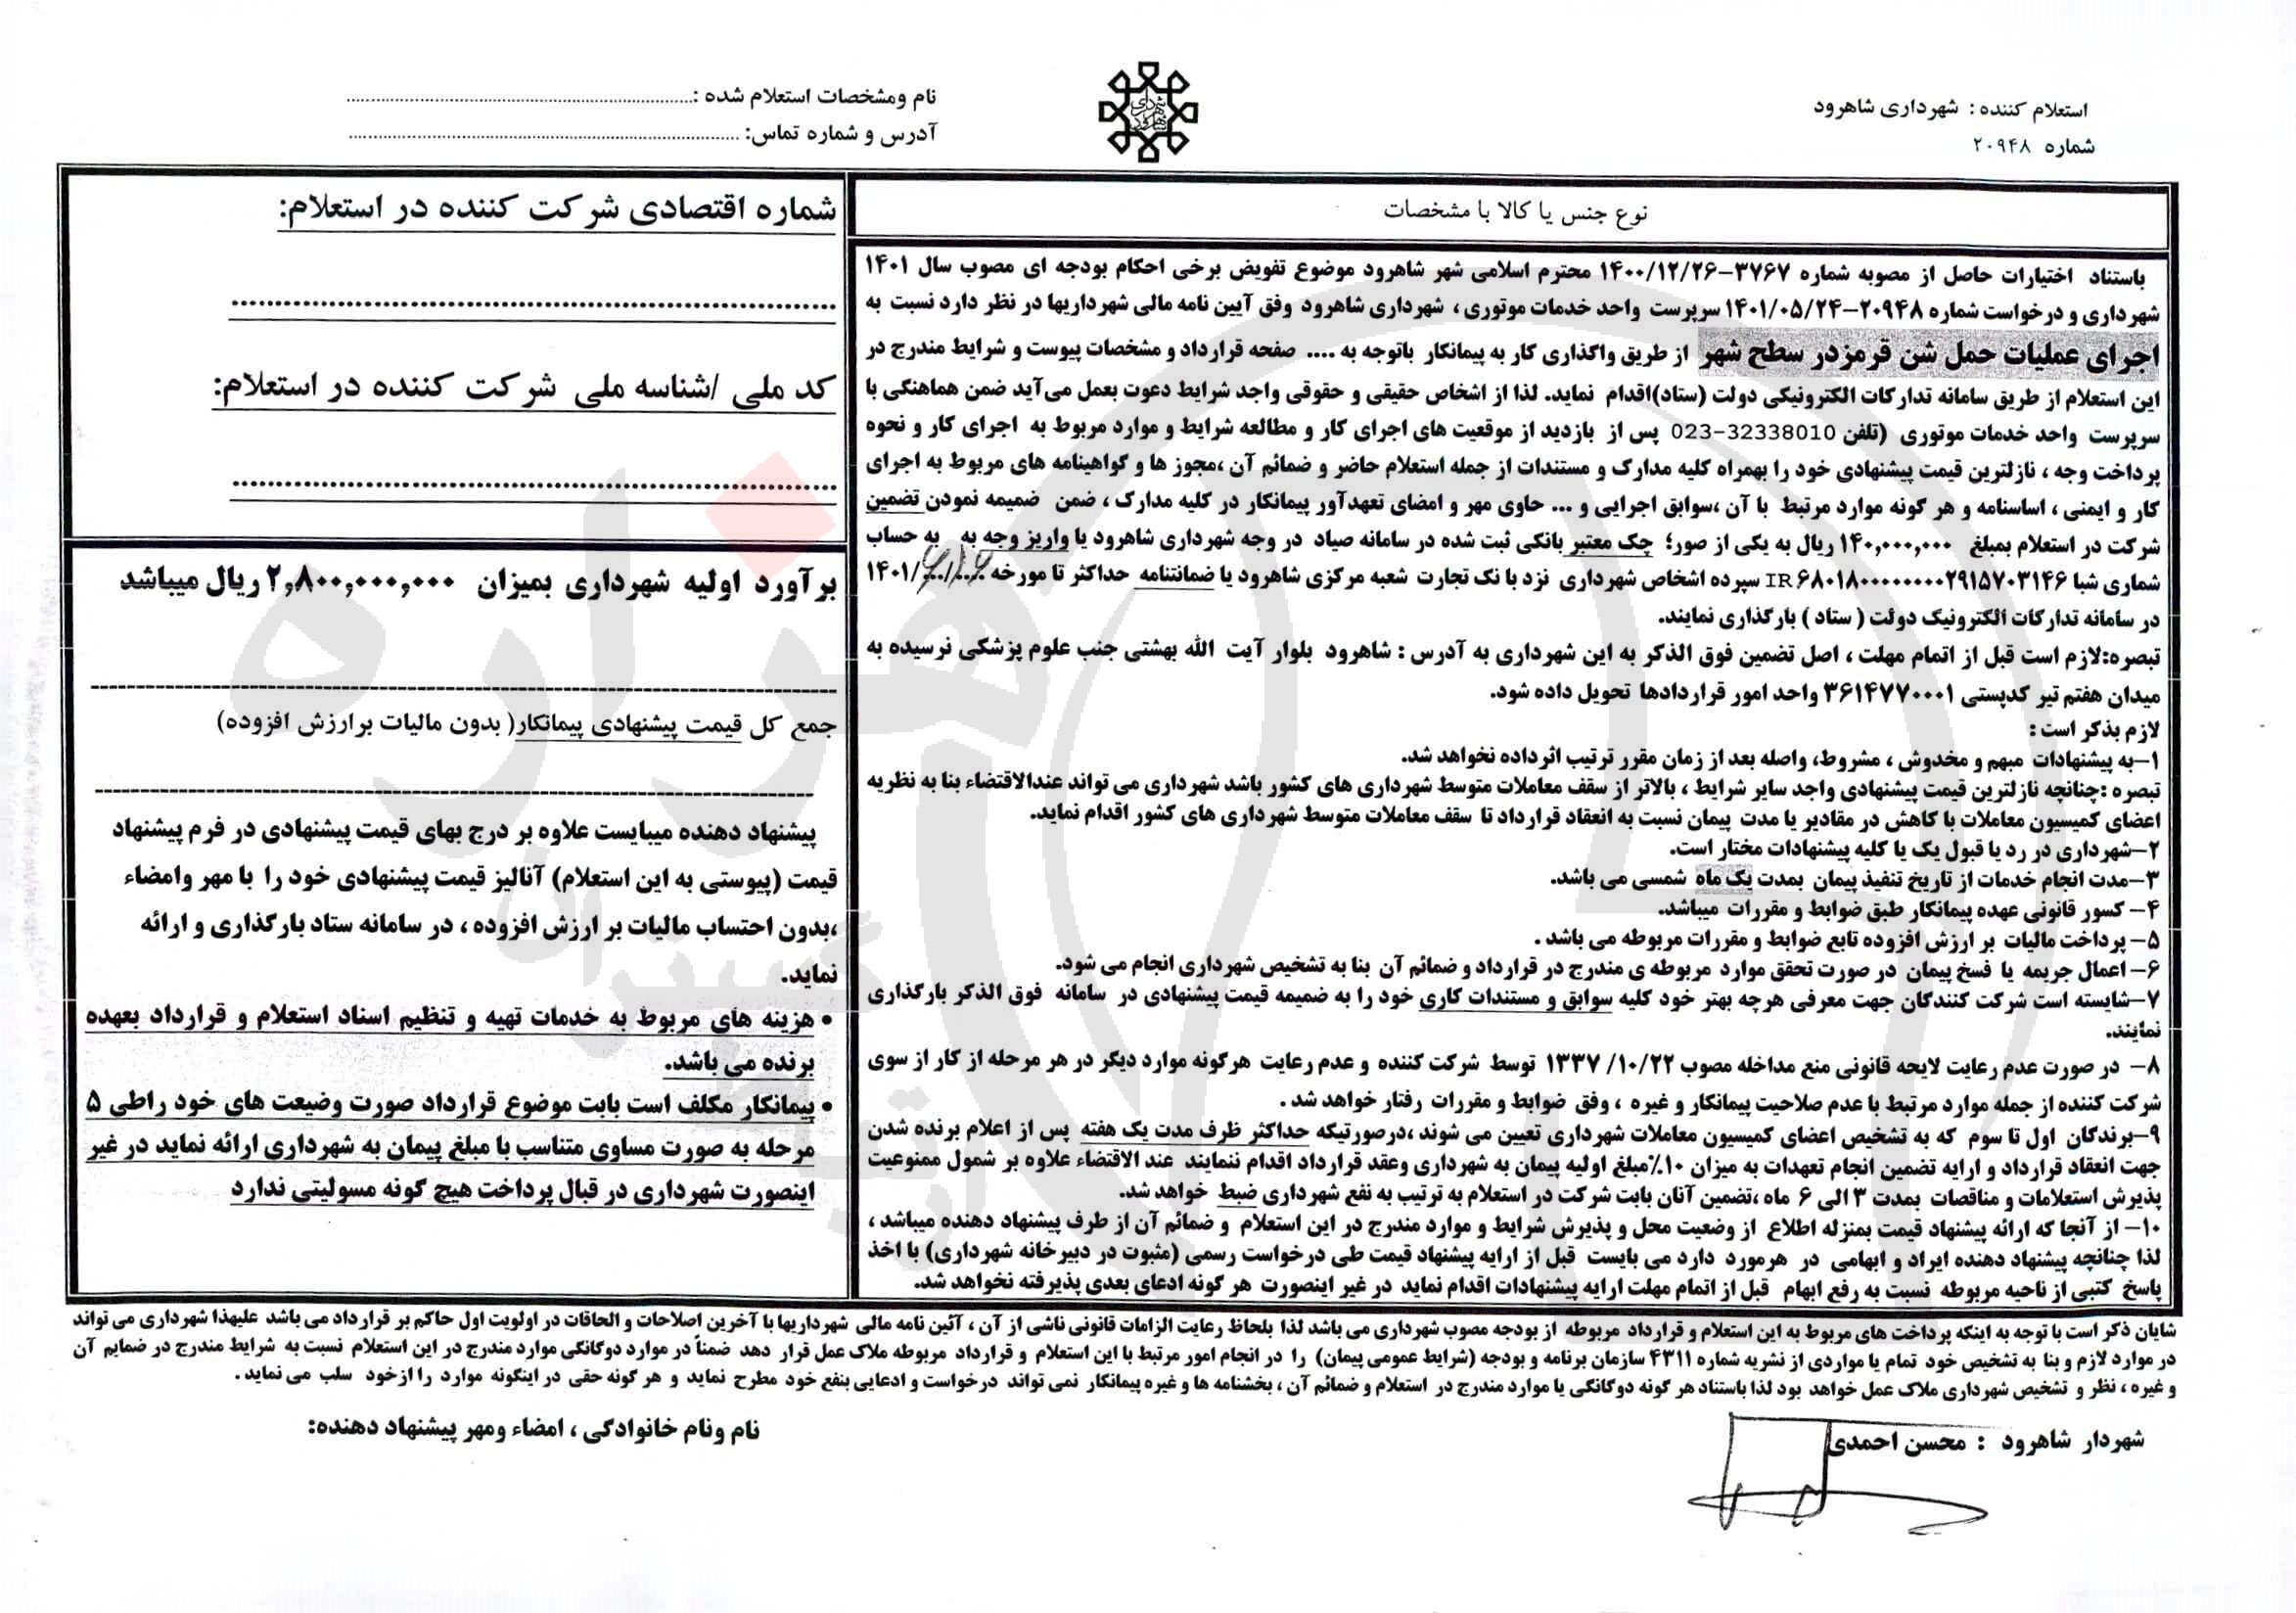 استعلام کننده : شهرداری شاهرود
شماره ۲۰۹۴۸
نام ومشخصات استعلام شده :
آدرس و شماره تماس:
نوع جنس یا کالا با مشخصات
باستناد اختیارات حاصل از مصوبه شماره ۳۷۶۷-۱۴۰۰/۱۲/۲۶ محترم اسلامی شهر شاهرود موضوع تفویض برخی احکام بودجه ای مصوب سال ۱۴۰۱
شهرداری و درخواست شماره ۲۰۹۴۸-۱۴۰۱/۰۵/۲۴ سرپرست واحد خدمات موتوری ، شهرداری شاهرود وفق آیین نامه مالی شهرداریها در نظر دارد نسبت به
اجرای عملیات حمل شن قرمزدر سطح شهر از طریق واگذاری کار به پیمانکار باتوجه به .... صفحه قرارداد و مشخصات پیوست و شرایط مندرج در
این استعلام از طریق سامانه تدارکات الکترونیکی دولت (ستاد)اقدام نماید. لذا از اشخاص حقیقی و حقوقی واجد شرایط دعوت بعمل می‌آید ضمن هماهنگی با
سرپرست واحد خدمات موتوری (تلفن 32338010-023 پس از بازدید از موقعیت های اجرای کار و مطالعه شرایط و موارد مربوط به اجرای کار و نحوه
پرداخت وجه ، نازلترین قیمت پیشنهادی خود را بهمراه کلیه مدارک و مستندات از جمله استعلام حاضر و ضمائم آن ،مجوز ها و گواهینامه های مربوط به اجرای
کار و ایمنی ، اساسنامه و هر گونه موارد مرتبط با آن ،سوابق اجرایی و ... حاوی مهر و امضای تعهدآور پیمانکار در کلیه مدارک ، ضمن ضمیمه نمودن تضمین
شرکت در استعلام بمبلغ ۱۴۰,۰۰۰,۰۰۰ ریال به یکی از صور؛ چک معتبر بانکی ثبت شده در سامانه صیاد در وجه شهرداری شاهرود یا واریز وجه به به حساب
شماری شبا IR۶۸۰۱۸۰۰۰۰۰۰۰۰۲۹۱۵۷۰۳۱۴۶ سپرده اشخاص شهرداری نزد بانک تجارت شعبه مرکزی شاهرود یا ضمانتنامه حداکثر تا مورخه ۱۴۰۱/
در سامانه تدارکات الکترونیک دولت ( ستاد ) بارگذاری نمایند.
تبصره:لازم است قبل از اتمام مهلت ، اصل تضمین فوق الذکر به این شهرداری به آدرس : شاهرود بلوار آیت الله بهشتی جنب علوم پزشکی نرسیده به
میدان هفتم تیر کدپستی ۳۶۱۴۷۷۰۰۰۱ واحد امور قراردادها تحویل داده شود.
لازم بذکر است :
۱-به پیشنهادات مبهم و مخدوش ، مشروط، واصله بعد از زمان مقرر ترتیب اثرداده نخواهد شد.
تبصره :چنانچه نازلترین قیمت پیشنهادی واجد سایر شرایط ، بالاتر از سقف معاملات متوسط شهرداری های کشور باشد شهرداری می تواند عندالاقتضاء بنا به نظریه
اعضای کمیسیون معاملات با کاهش در مقادیر یا مدت پیمان نسبت به انعقاد قرارداد تا سقف معاملات متوسط شهرداری های کشور اقدام نماید.
۲-شهرداری در رد یا قبول یک یا کلیه پیشنهادات مختار است.
۳-مدت انجام خدمات از تاریخ تنفیذ پیمان بمدت یک ماه شمسی می باشد.
۴- کسور قانونی عهده پیمانکار طبق ضوابط و مقررات میباشد.
۵- پرداخت مالیات بر ارزش افزوده تابع ضوابط و مقررات مربوطه می باشد .
۶- اعمال جریمه یا فسخ پیمان در صورت تحقق موارد مربوطه ی مندرج در قرارداد و ضمائم آن بنا به تشخیص شهرداری انجام می شود.
۷-شایسته است شرکت کنندگان جهت معرفی هرچه بهتر خود کلیه سوابق و مستندات کاری خود را به ضمیمه قیمت پیشنهادی در سامانه فوق الذکر بارگذاری
نمایند.
۸- در صورت عدم رعایت لایحه قانونی منع مداخله مصوب ۱۳۳۷/۱۰/۲۲ توسط شرکت کننده و عدم رعایت هرگونه موارد دیگر در هر مرحله از کار از سوی
شرکت کننده از جمله موارد مرتبط با عدم صلاحیت پیمانکار و غیره ، وفق ضوابط و مقررات رفتار خواهد شد .
۹-برندگان اول تا سوم که به تشخیص اعضای کمیسیون معاملات شهرداری تعیین می شوند ،درصورتیکه حداکثر ظرف مدت یک هفته پس از اعلام برنده شدن
جهت انعقاد قرارداد و ارایه تضمین انجام تعهدات به میزان ۱۰٪مبلغ اولیه پیمان به شهرداری وعقد قرارداد اقدام ننمایند عند الاقتضاء علاوه بر شمول ممنوعیت
پذیرش استعلامات و مناقصات بمدت ۳ الی ۶ ماه ،تضمین آنان بابت شرکت در استعلام به ترتیب به نفع شهرداری ضبط خواهد شد.
۱۰- از آنجا که ارائه پیشنهاد قیمت بمنزله اطلاع از وضعیت محل و پذیرش شرایط و موارد مندرج در این استعلام و ضمائم آن از طرف پیشنهاد دهنده میباشد ،
لذا چنانچه پیشنهاد دهنده ایراد و ابهامی در هرمورد دارد می بایست قبل از ارایه پیشنهاد قیمت طی درخواست رسمی (مثبوت در دبیرخانه شهرداری) با اخذ
پاسخ کتبی از ناحیه مربوطه نسبت به رفع ابهام قبل از اتمام مهلت ارایه پیشنهادات اقدام نماید در غیر اینصورت هر گونه ادعای بعدی پذیرفته نخواهد شد.
شماره اقتصادی شرکت کننده در استعلام:
کد ملی /شناسه ملی شرکت کننده در استعلام:
برآورد اولیه شهرداری بمیزان ۲,۸۰۰,۰۰۰,۰۰۰ ریال میباشد
جمع کل قیمت پیشنهادی پیمانکار( بدون مالیات برارزش افزوده)
پیشنهاد دهنده میبایست علاوه بر درج بهای قیمت پیشنهادی در فرم پیشنهاد
قیمت (پیوستی به این استعلام) آنالیز قیمت پیشنهادی خود را با مهر وامضاء
،بدون احتساب مالیات بر ارزش افزوده ، در سامانه ستاد بارگذاری و ارائه
نماید.
• هزینه های مربوط به خدمات تهیه و تنظیم اسناد استعلام و قرارداد بعهده
برنده می باشد.
• پیمانکار مکلف است بابت موضوع قرارداد صورت وضیعت های خود راطی ۵
مرحله به صورت مساوی متناسب با مبلغ پیمان به شهرداری ارائه نماید در غیر
اینصورت شهرداری در قبال پرداخت هیچ گونه مسولیتی ندارد
شایان ذکر است با توجه به اینکه پرداخت های مربوط به این استعلام و قرارداد مربوطه از بودجه مصوب شهرداری می باشد لذا بلحاظ رعایت الزامات قانونی ناشی از آن ، آئین نامه مالی شهرداریها با آخرین اصلاحات و الحاقات در اولویت اول حاکم بر قرارداد می باشد علیهذا شهرداری می تواند
در موارد لازم و بنا به تشخیص خود تمام یا مواردی از نشریه شماره ۴۳۱۱ سازمان برنامه و بودجه (شرایط عمومی پیمان) را در انجام امور مرتبط با این استعلام و قرارداد مربوطه ملاک عمل قرار دهد ضمناً در موارد دوگانگی موارد مندرج در این استعلام نسبت به شرایط مندرج در ضمایم آن
و غیره ، نظر و تشخیص شهرداری ملاک عمل خواهد بود لذا باستناد هر گونه دوگانگی یا موارد مندرج در استعلام و ضمائم آن ، بخشنامه ها و غیره پیمانکار نمی تواند درخواست و ادعایی بنفع خود مطرح نماید و هر گونه حقی در اینگونه موارد را ازخود سلب می نماید .
شهردار شاهرود : محسن احمدی
نام ونام خانوادگی ، امضاء ومهر پیشنهاد دهنده: